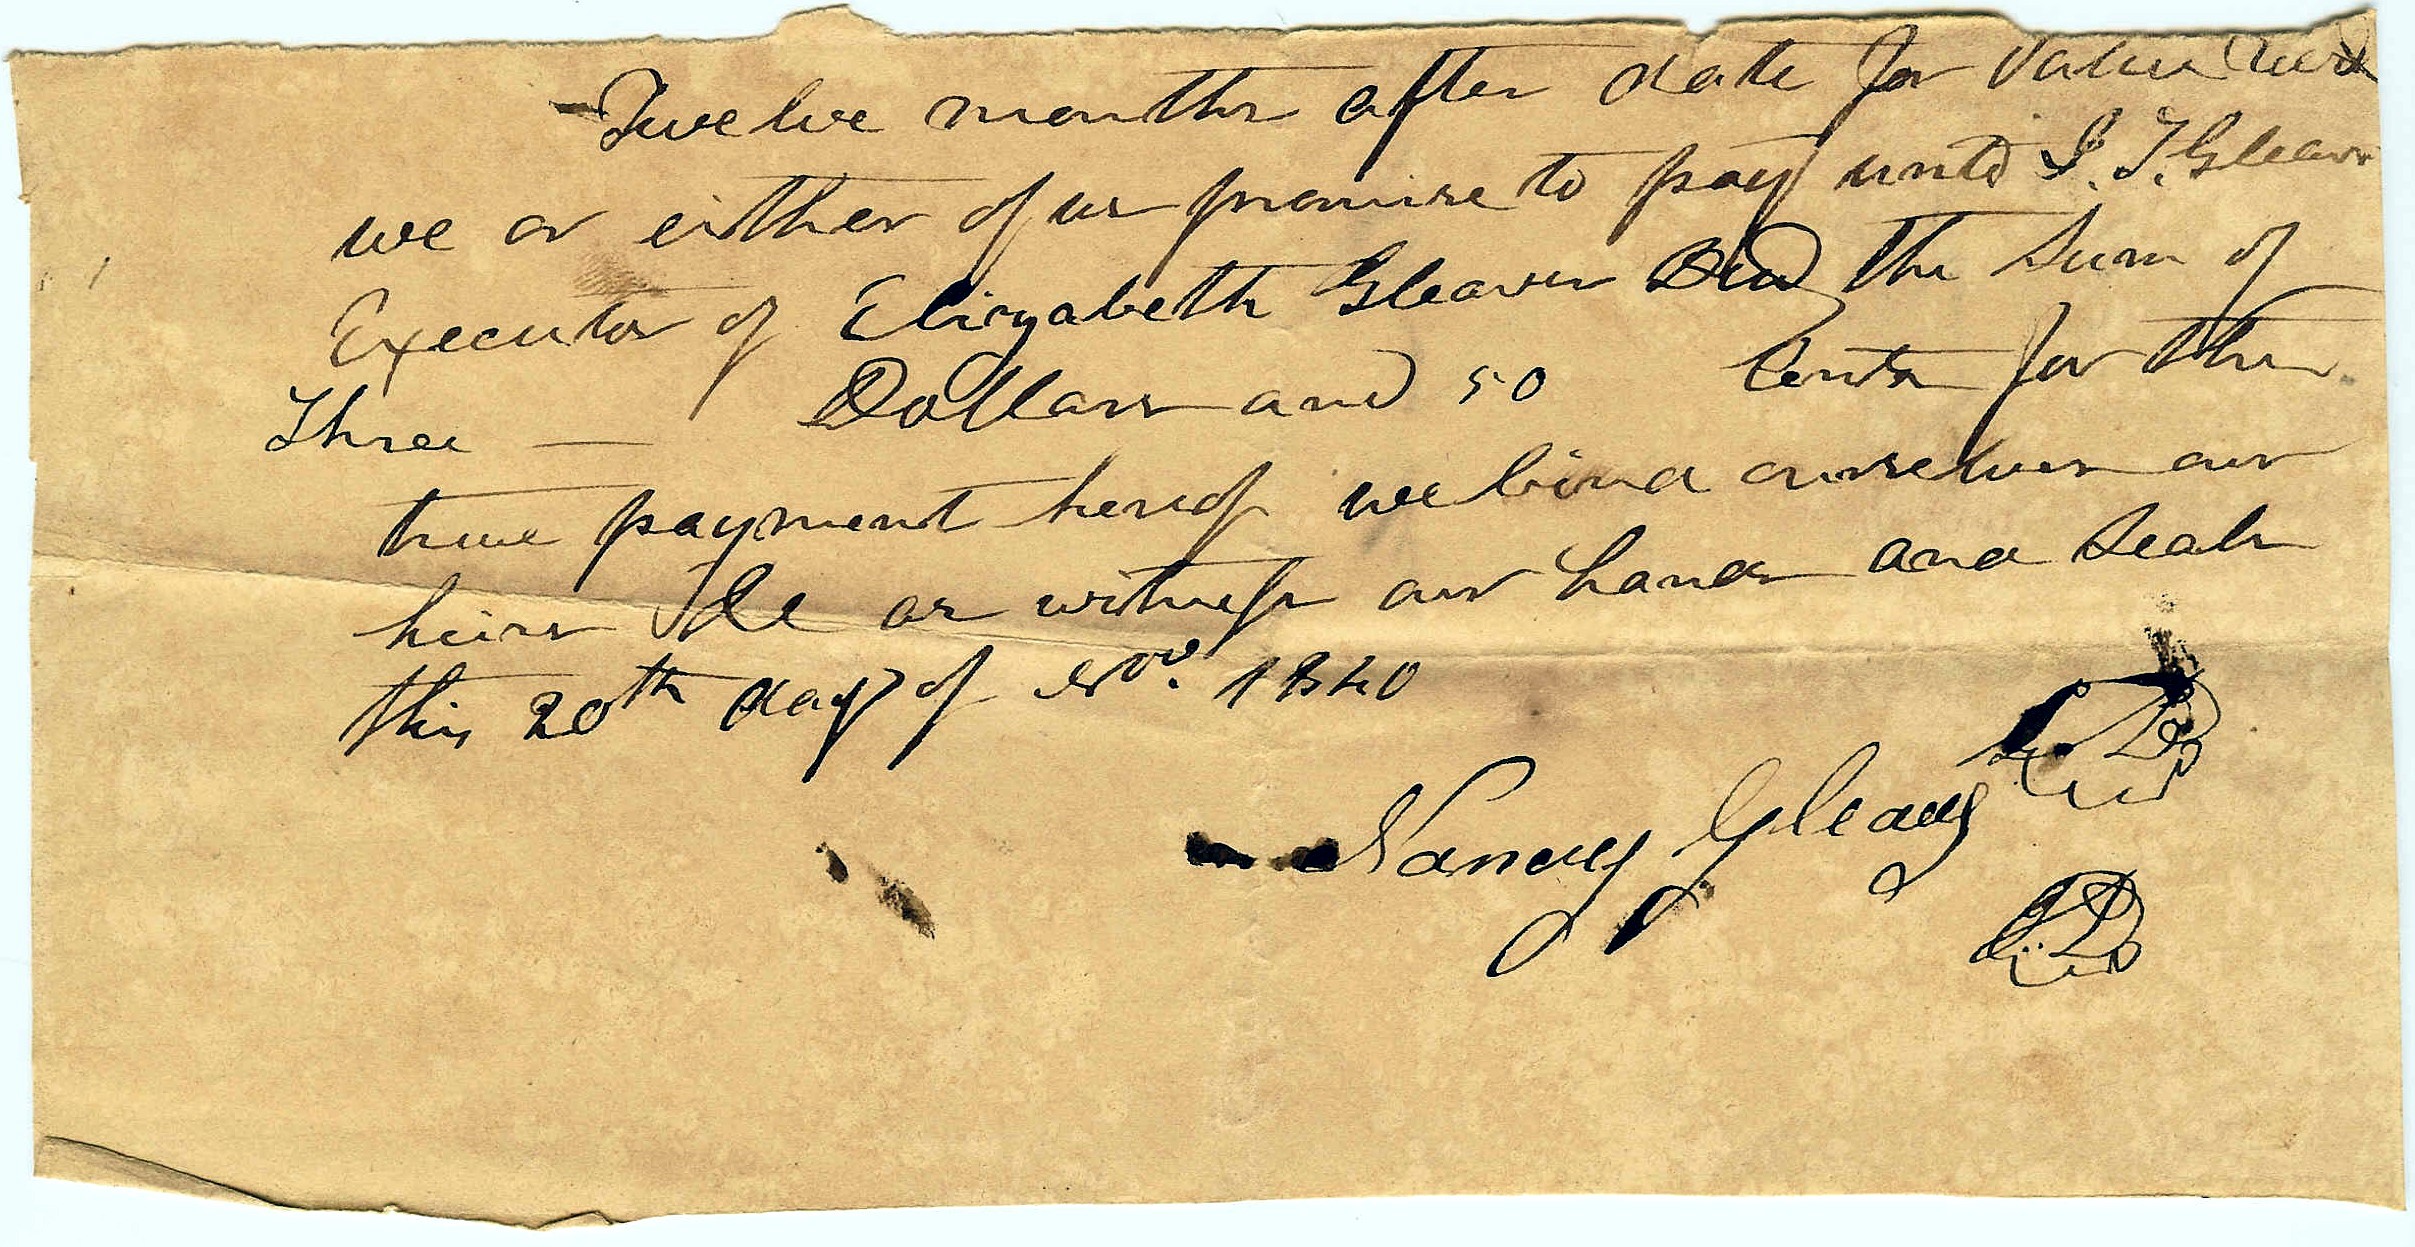 Twelve months after date for Value Recd
we or either of us promise to pay unto I. T. Gleaves
Executor of Elizabeth Gleaves Decd the Sum of
Three — Dollars and 50 Cents for the
true payment hereof we bind ourselves our
heirs &c as witness our hands and Seals
this 20th day of Nov. 1840
Nancy Gleaves